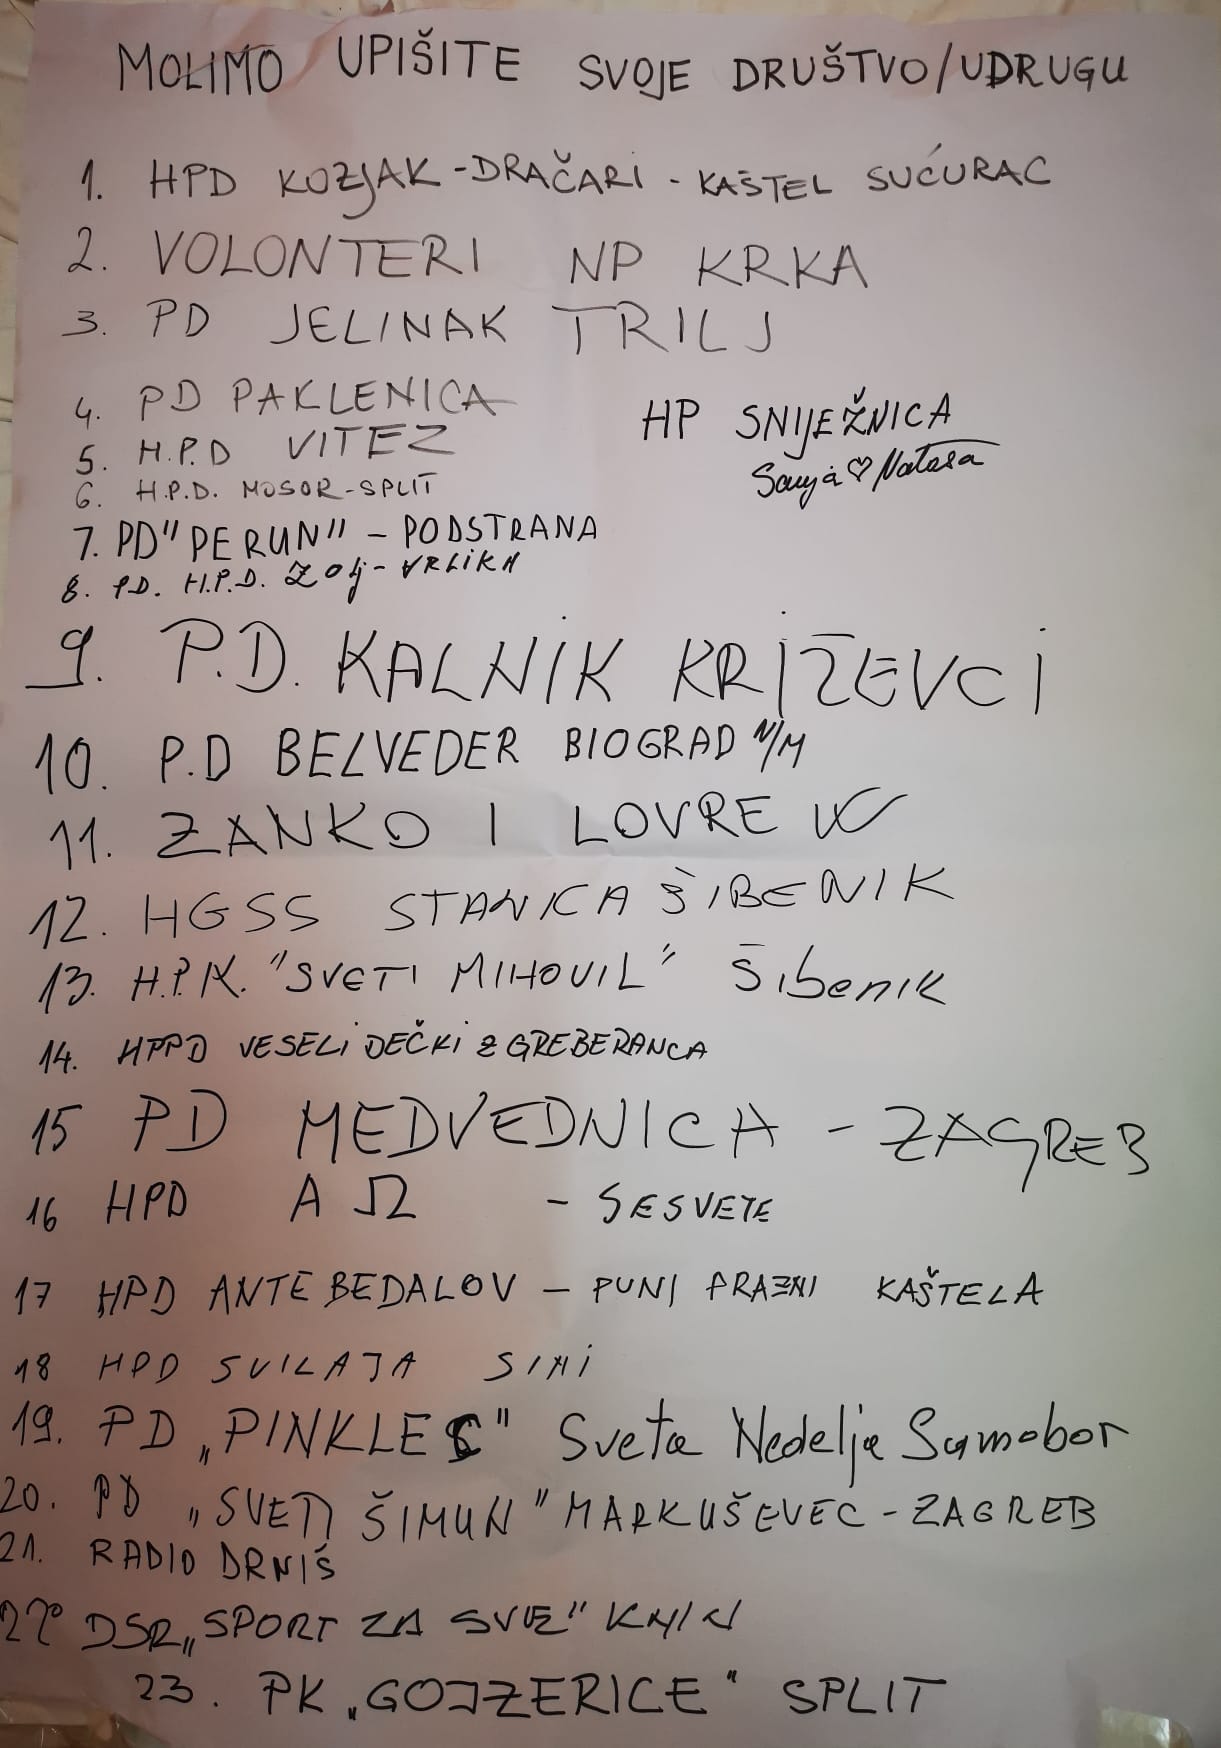 MOLIMO UPIŠITE SVOJE DRUŠTVO/UDRUGU
1. HPD KOZJAK - DRAČARI - KAŠTEL SUĆURAC
2. VOLONTERI NP KRKA
3. PD JELINAK TRILJ
4. PD PAKLENICA
HP SNIJEŽNICA
Sanja ♡ Natasa
5. H.P.D VITEZ
6. H.P.D. MOSOR-SPLIT
7. PD "PERUN" - PODSTRANA
8. PD. H.P.D. - VRLIKA
9. P.D. KALNIK KRIŽEVCI
10. P.D BELVEDER BIOGRAD N/M
11. ZANKO I LOVRE
12. HGSS STANICA ŠIBENIK
13. H.P.K. "SVETI MIHOVIL" Šibenik
14. HPPD VESELI DEČKI Z GREBERANCA
15 PD MEDVEDNICA - ZAGREB
16 HPD A Ω - SESVETE
17 HPD ANTE BEDALOV - PUNI PRAZNI KAŠTELA
18 HPD SVILAJA SINJ
19. PD „PINKLEC" Sveta Nedelja Samobor
20. PD „SVETI ŠIMUN" MARKUŠEVEC - ZAGREB
21. RADIO DRNIŠ
22° DSR „SPORT ZA SVE" KNIN
23. PK „GOJZERICE" SPLIT